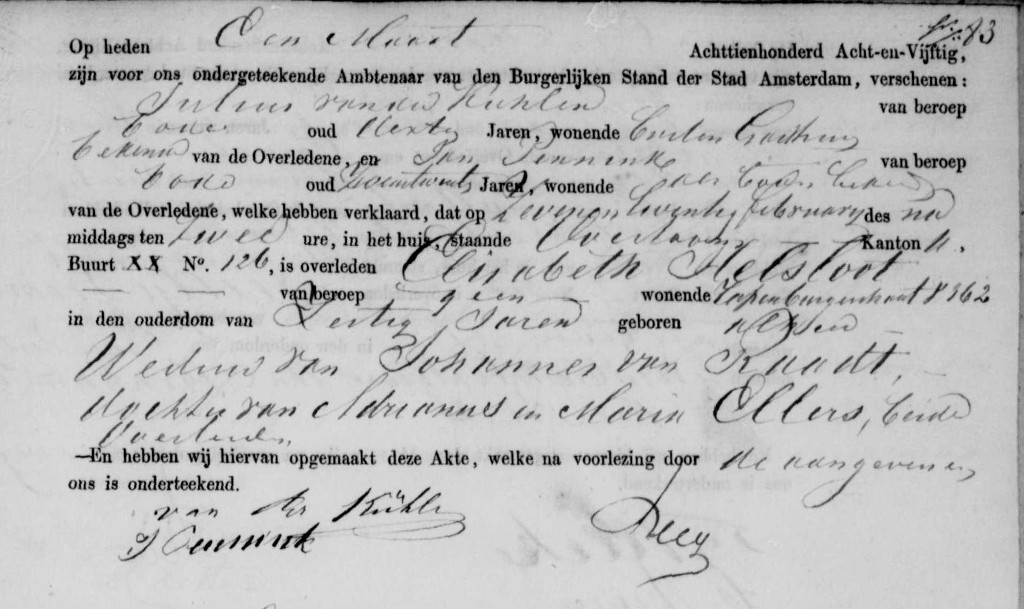 83
Op heden Een Maart Achttienhonderd Acht-en-Vijftig,
zijn voor ons ondergeteekende Ambtenaar van den Burgerlijken Stand der Stad Amsterdam, verschenen:
Julius van der Kuhlen van beroep
bode oud Jaren, wonende
bekende van de Overledene, en Jan Pennink van beroep
bode oud Jaren, wonende bekende
van de Overledene, welke hebben verklaard, dat op Zevenentwintig february des na
middags ten twee ure, in het huis, staande Overtoom Kanton 4.
Buurt XX No. 126, is overleden Elisabeth Helsloot
van beroep geen wonende 362
in den ouderdom van Zestig Jaren geboren alhier
Weduw van Johannes van Raadt,
dochter van Adrianus en Maria Ellers, beide
overleden.
En hebben wij hiervan opgemaakt deze Akte, welke na voorlezing door de aangevenen
ons is onderteekend.
van der Kühle
J Pennink